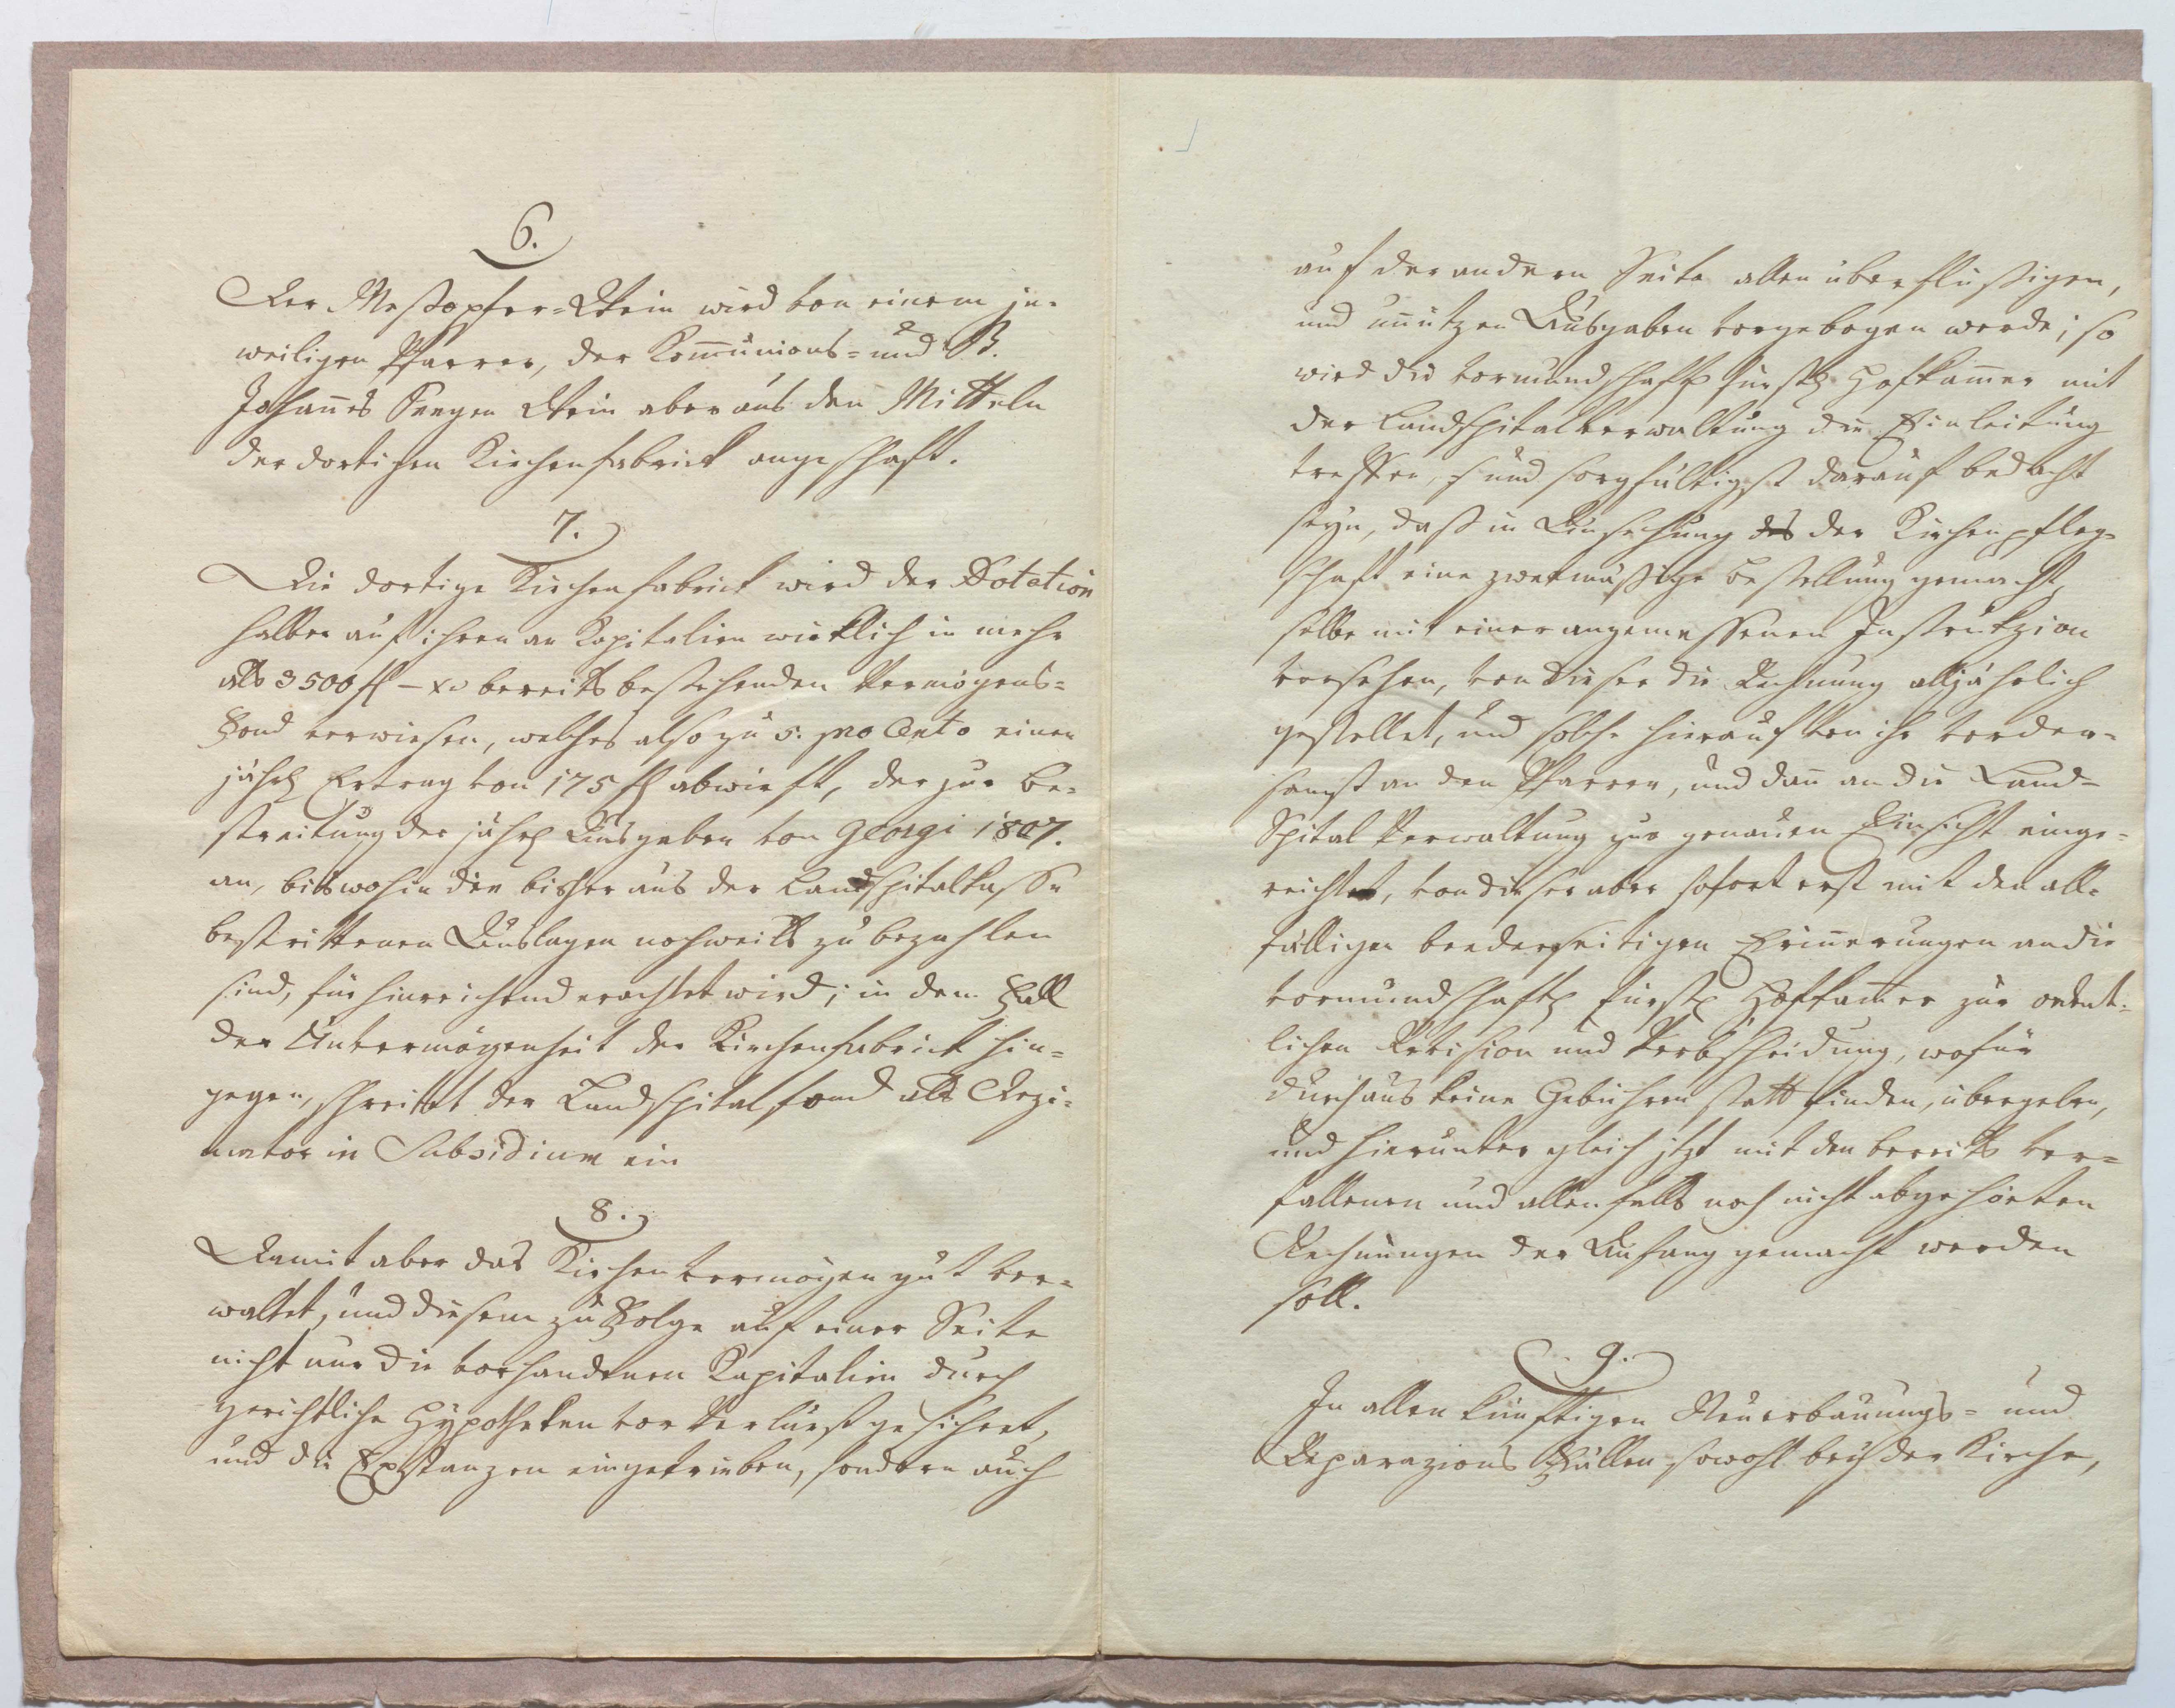 6.
Der Meßopfer-Wein wird von einem je-
weiligen Pfarrer, der Kom̅unions- und B.
Johan̅es Seegen Wein aber aus den Mitteln
der dortigen Kirchenfabrick angeschaft.
7.
Die dortige Kirchenfabrick wird der Dotation
halber auf ihren an Kapitalien wirklich in mehr
als 3500 fl – xr bereits bestehenden Vermögens-
Fond verwiesen, welcher also zu 5. pro Cento einen
jährl Ertrag von 175 fl abwirft, der zur Be-
streitung der jährl Ausgaben von Georgi 1807.
an, bis wohin die bisher aus der Landspitalkasse
bestrittenen Auslagen nochweils zu bezahlen
sind, für hinreichend erachtet wird; in dem Fall
der Unvermögenheit der Kirchenfabrick hin-
gegen, schreittet der Landspitalfond als Dezi-
mator in Subsidium ein
8.
Damit aber das Kirchenvermögen gut ver-
waltet, und diesem zu Folge auf einer Seite
nicht nur die vorhandenen Kapitalien durch
gerichtliche Hypotheken vor Verlurst gesichert,
und die Exstanzen eingetrieben, sondern auch
auf der andern Seite allen überflüßigen,
und un̅ützen Ausgaben vorgebogen werde; so
wird die vormundschaftl fürstl Hofkam̅er mit
der Landspitalverwaltung die Einleitung
treffen, und sorgfältigst darauf bedacht
seyn, daß in Ansehung des der Kirchenpfleg-
schaft eine zwekmäßige Bestellung gemacht,
selbe mit einer angemessenen Instrukzion
versehen, von dieser die Rechnung alljährlich
gestellet, und solche hierauf von ihr vorder-
samst an den Pfarrer, und dan̅ an die Land-
Spital Verwaltung zur genauen Einsicht einge-
reichet, von dieser aber sofort erst mit den all-
fälligen beederseitigen Erin̅erungen an die
vormundschaftl fürstl Hofkam̅er zur ordent-
lichen Revision und Verbscheidung, wofür
durchaus keine Gebühren statt finden, übergeben,
und hierunter gleich jtzt mit den bereits ver-
fallenen und allenfalls noch nicht abgehörten
Rechnungen der Anfang gemacht werden
soll.
9.
In allen künftigen Neuerbauungs- und
Reparazions Fällen sowohl bey der Kirche,